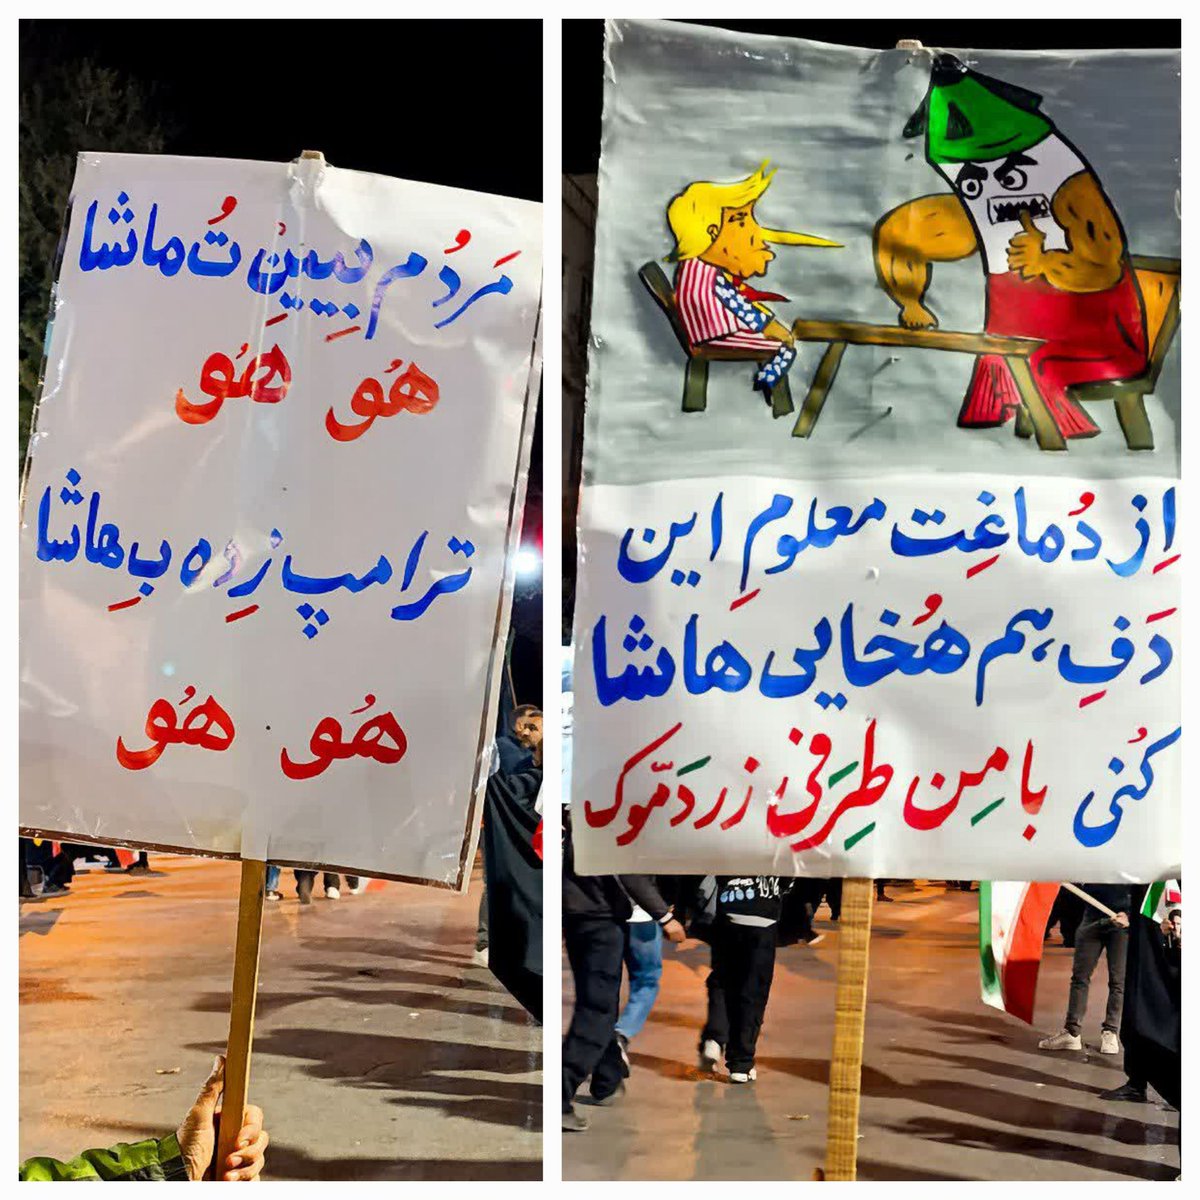 مَردُم بِبینِ تُ ماشا
هُو هُو
ترامپ زِده بِ هاشا
هُو هُو
اِز دُماغِت معلومِ این
دَفِ هم هُخایی هاشا
کُنی با مِن طِرَفی زردَمّوک